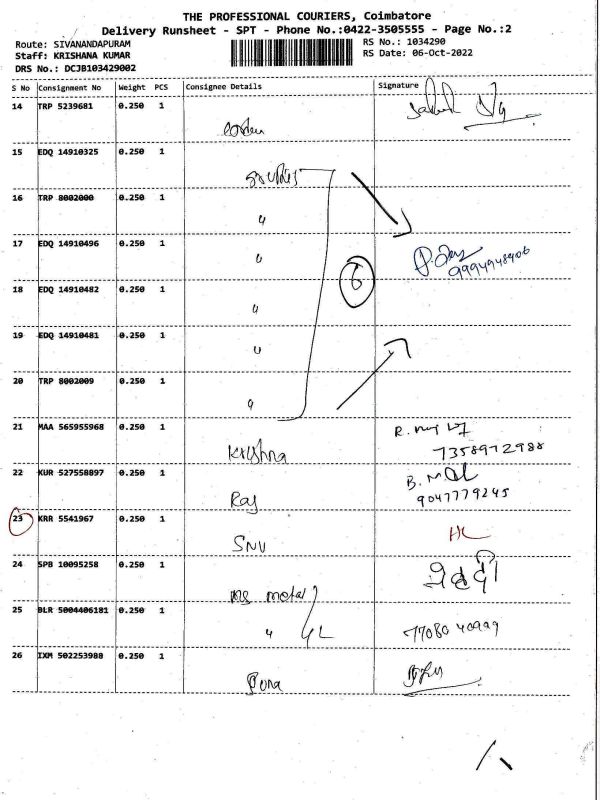 THE PROFESSIONAL COURIERS, Coimbatore
Delivery Runsheet - SPT - Phone No.:0422-3505555 - Page No.:2
Route: SIVANANDAPURAM
RS No.: 1034290
Staff: KRISHANA KUMAR
RS Date: 06-Oct-2022
DRS No.: DCJB103429002
S No Consignment No Weight PCS Consignee Details Signature
14 TRP 5239681 0.250 1
15 EDQ 14910325 0.250 1
16 TRP 8002000 0.250 1
"
17 EDQ 14910496 0.250 1
"
9994948406
6
18 EDQ 14910482 0.250 1
"
19 EDQ 14910481 0.250 1
"
20 TRP 8002009 0.250 1
"
21 MAA 565955968 0.250 1
Krishna
7358972988
22 KUR 527558897 0.250 1
Raj
9047779245
23 KRR 5541967 0.250 1
SNV
24 SPB 10095258 0.250 1
ms metal
25 BLR 5004406181 0.250 1
"
77080 40999
26 IXM 502253988 0.250 1